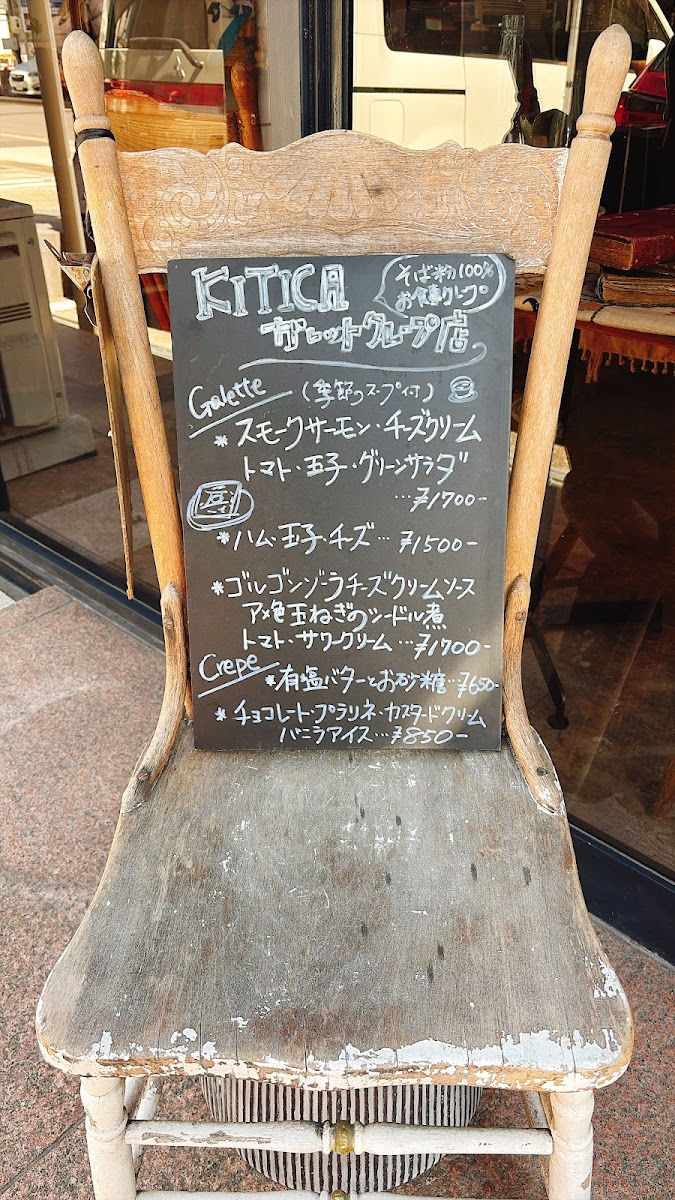 KITICA
そば粉100%
お食事クレープ
ガレットクレープ店
Galette (季節のスープ付)
* スモークサーモン・チーズクリーム
トマト・玉子・グリーンサラダ
…¥1700-
* ハム・玉子・チーズ…¥1500-
* ゴルゴンゾーラチーズクリームソース
アメ色玉ねぎのシードル煮
トマト・サワークリーム…¥1700-
Crepe
* 有塩バターとお砂糖…¥650-
* チョコレート・プラリネ・カスタードクリーム
バニラアイス…¥850-